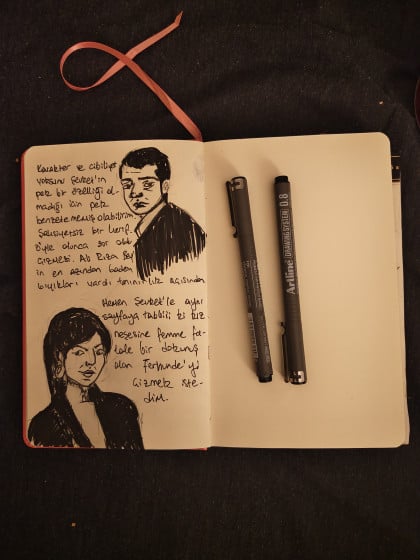 Karakter ve cibiliyet
yoksunu Şevket'in
pek bir özelliği ol-
madığı için pek
benzetememiş olabilirim.
Şahsiyetsiz bir herif.
Öyle olunca zor oldu
çizmesi. Ali Rıza Bey
in en azından badem
bıyıkları vardı tanınırlık açısından
Hemen Şevket'le aynı
sayfaya tabii ki
neşesine femme fa-
tale bir dokunuş
olan Ferhunde'yi
çizmek iste-
dim.
Artline DRAWING SYSTEM 0.8